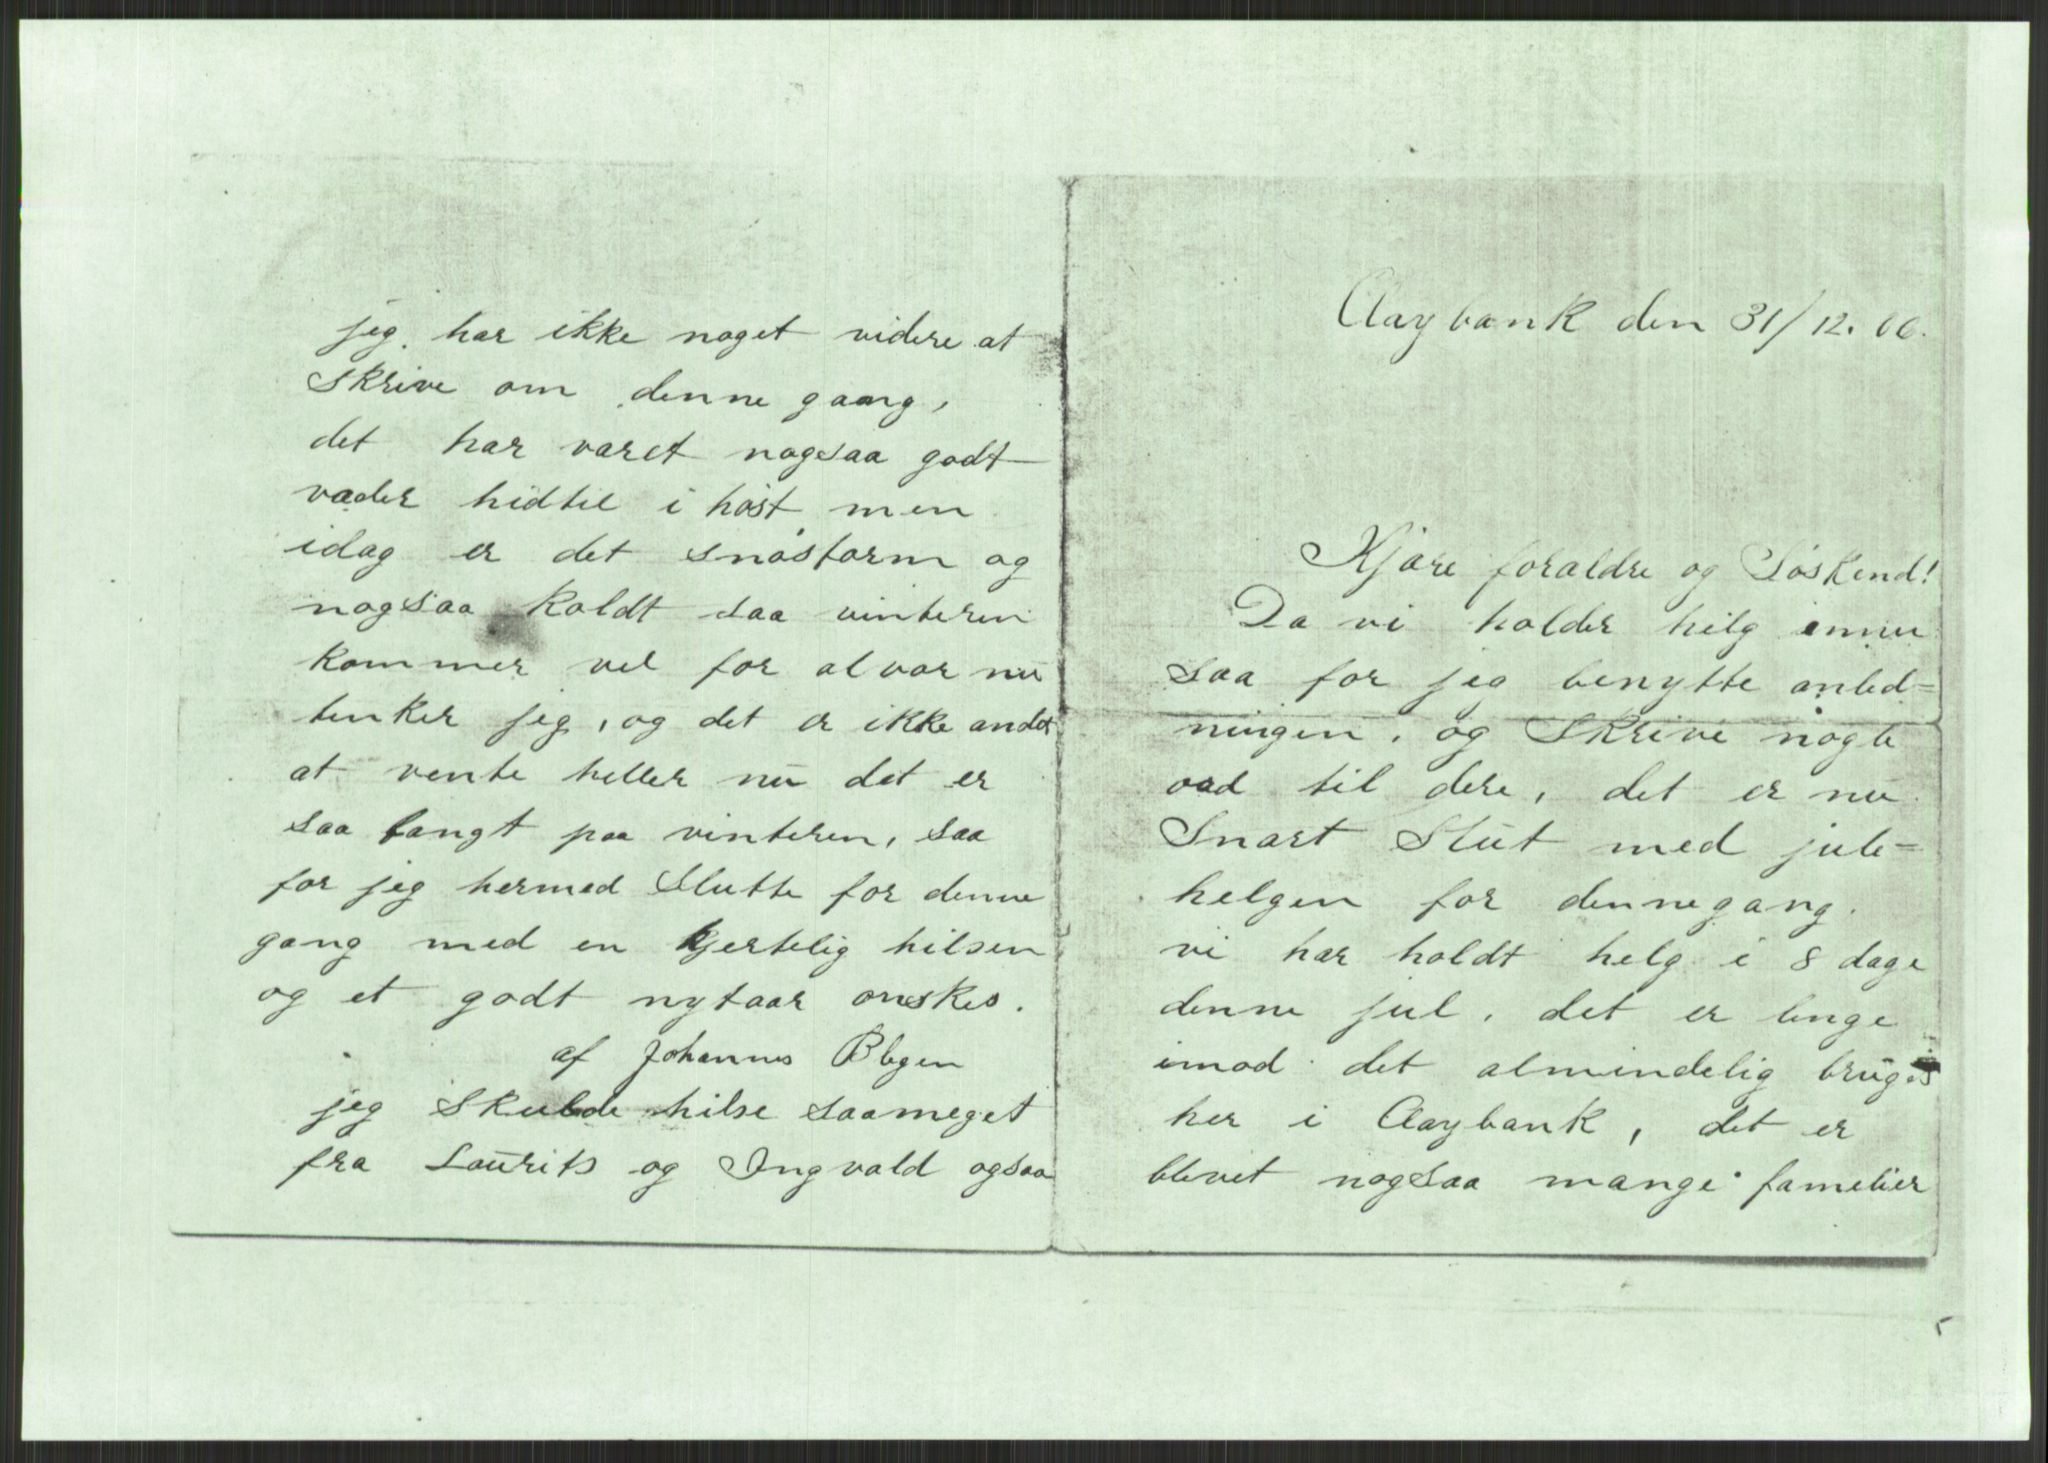 Claybank den 31/12.06.
Kjære foraldre og Søskend!
Da vi holder helg ennu
saa for jeg benytte anled=
ningen, og Skrive nogle
ord til dere, det er nu
Snart Slut med jule=
helgen for dennegang.
vi har holdt helg i 8 dage
denne jul, det er lenge
imod det almindelig bruges
her i Claybank, det er
blevet nogsaa mange familier
jeg har ikke noget videre at
Skrive om denne gaang,
det har varet nogsaa godt
væder hidtil i høst men
idag er det snøstorm og
nogsaa koldt saa vinteren
kommer vel for alvor nu
tenker jeg, og det er ikke andet
at vente heller nu det er
saa langt paa vinteren, saa
for jeg hermed Slutte for denne
gang med en kjertelig hilsen
og et godt nytaar onskes.
af Johannes Blegen
jeg Skulde hilse saameget
fra Laurits og Ingvald ogsaa